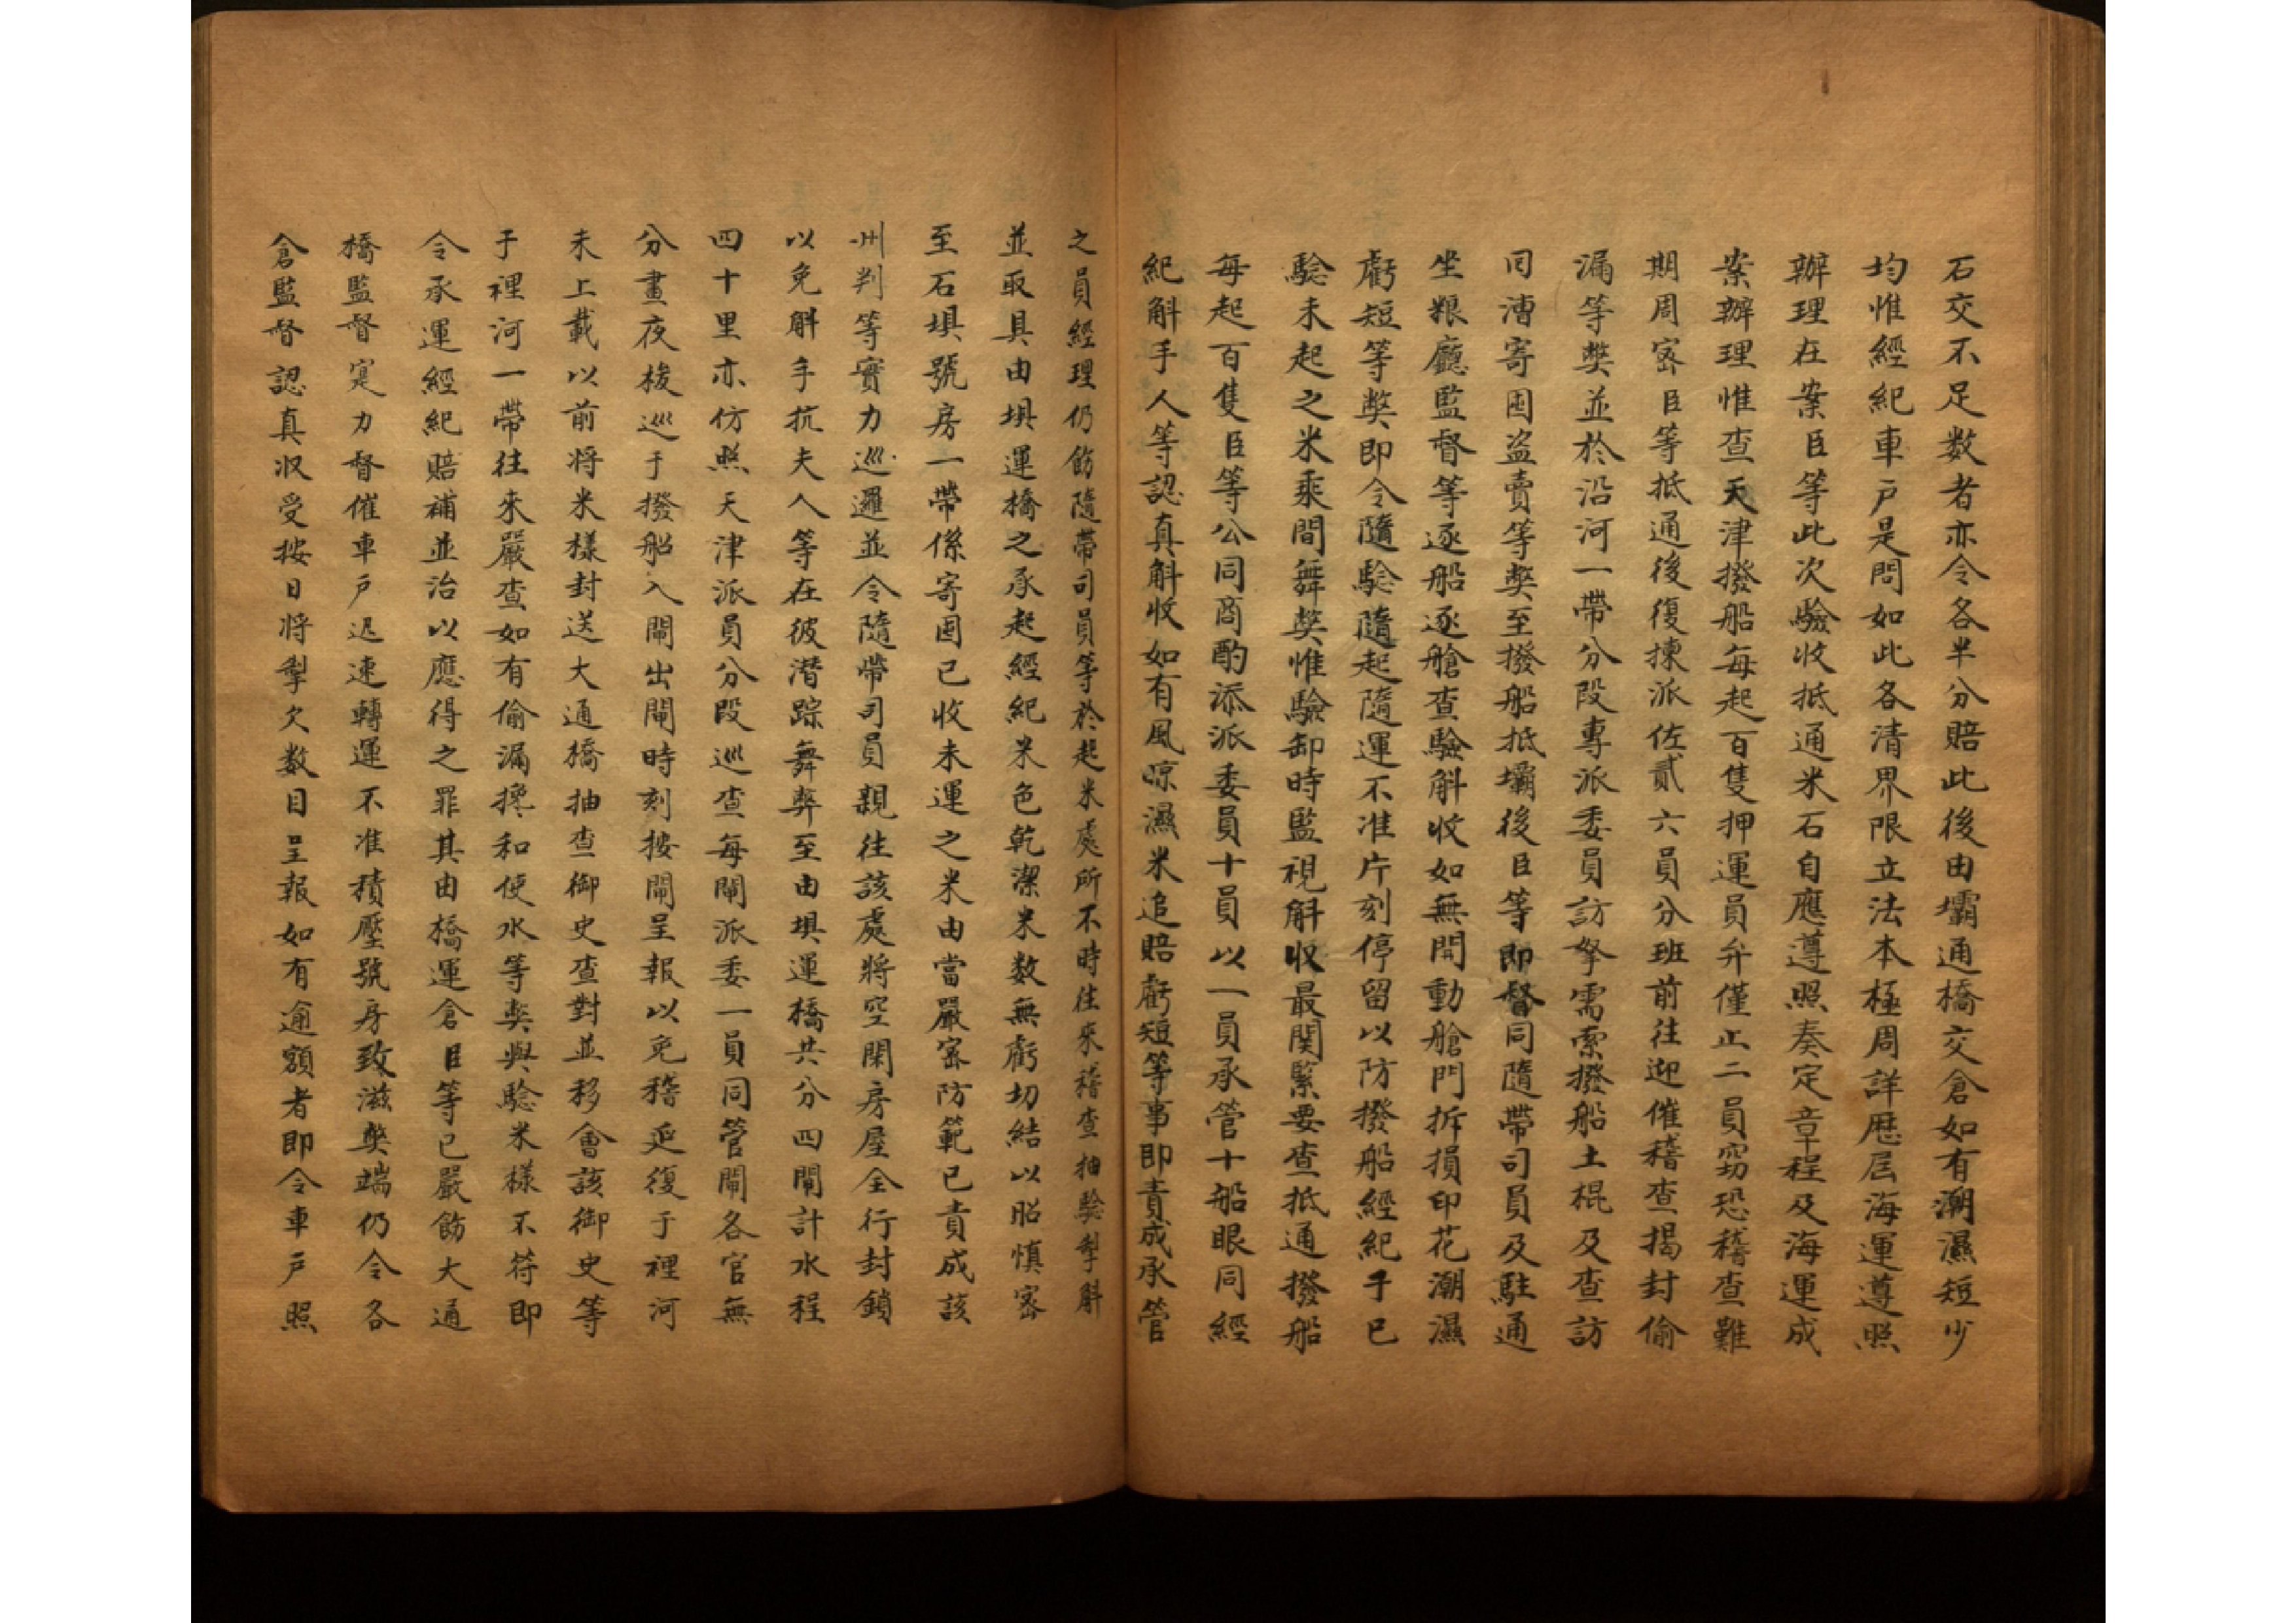 石交不足数者亦令各半分賠此後由壩通橋交倉如有潮濕短少
均惟經紀車戸是問如此各清界限立法本極周詳歴屆海運遵照
辦理在案臣等此次驗收抵通米石自應遵照奏定章程及海運成
案辦理惟查天津撥船每起百隻押運員弁僅止二員窃恐稽查難
期周宻臣等抵通後復揀派佐貳六員分班前往迎催稽查揭封偷
漏等獘並於沿河一帶分段專派委員訪拏需索撥船土棍及查訪
囘漕寄囤盗賣等獘至撥船抵壩後臣等即督同隨帶司員及駐通
坐粮廳監督等逐船逐艙查驗斛收如無開動艙門拆損印花潮濕
虧短等獘即令隨騐隨起隨運不准片刻停留以防撥船經紀于已
騐未起之米乘間舞獘惟驗卸時監視斛収最関緊要查抵通撥船
每起百隻臣等公同商酌添派委員十員以一員承管十船眼同經
紀斛手人等認真斛收如有風晾濕米追賠虧短等事即責成承管
之員經理仍飭隨帶司員等於起米處所不時往來稽查抽驗掣斛
並取具由埧運橋之承起經紀米色乾潔米数無虧切結以昭慎宻
至石埧號房一帶係寄囤已收未運之米由當嚴宻防範已責成該
州判等實力巡邏並令隨帶司員親往該處將空閑房屋全行封鎖
以免斛手抗夫人等在彼潜踪舞弊至由埧運橋共分四閘計水程
四十里亦仿照天津派員分段巡查每閘派委一員同管閘各官無
分晝夜梭巡于撥船入閘出閘時刻按閘呈報以免稽延復于裡河
未上載以前将米樣封送大通橋抽查御史查對並移會該御史等
于裡河一帶往來嚴查如有偷漏攙和使水等獘與騐米樣不符即
令承運經紀賠補並治以應得之罪其由橋運倉臣等已嚴飭大通
橋監督寔力督催車戸迅速轉運不准積壓號房致滋獘端仍令各
倉監督認真収受按日将掣欠数目呈報如有逾額者即令車戸照